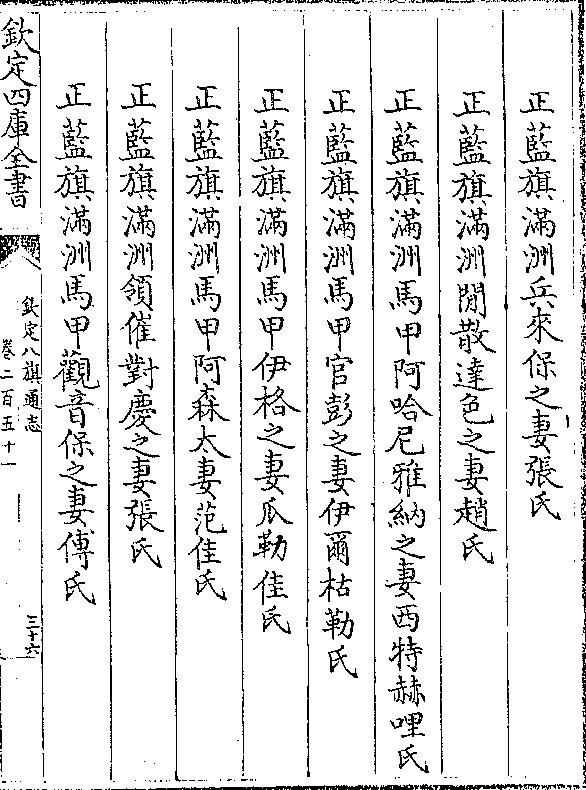 正藍旗滿洲兵來保之妻張氏
正藍旗滿洲閒散達色之妻趙氏
正藍旗滿洲馬甲阿哈尼雅納之妻西特赫哩氏
正藍旗滿洲馬甲官彭之妻伊爾枯勒氏
正藍旗滿洲馬甲伊格之妻瓜勒佳氏
正藍旗滿洲馬甲阿森太妻范佳氏
正藍旗滿洲領催對慶之妻張氏
正藍旗滿洲馬甲觀音保之妻傅氏
欽定四庫全書
欽定八旗通志
卷二百五十一
三十六